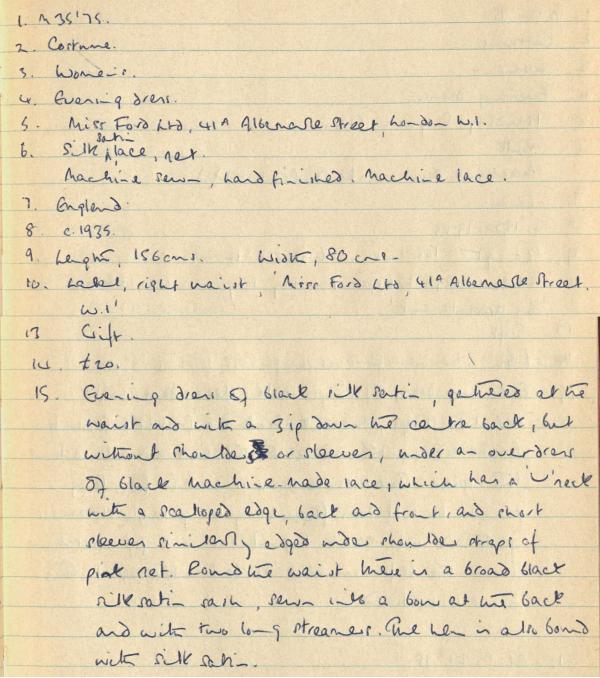 1. M 35'75.
2. Costume.
3. Women's.
4. Evening dress.
5. Miss Ford Ltd, 41A Albemarle Street, London W.1.
6. Silk satin, lace, net.
Machine sewn, hand finished. Machine lace.
7. England.
8 c.1935.
9 Length, 156cms. Width, 80 cms.
10. Label, right waist, 'Miss Ford Ltd, 41A Albemarle Street.
W.1'
13 Gift.
14. £20.
15. Evening dress of black silk satin, gathered at the
waist and with a zip down the centre back, but
without shoulders or sleeves, under an overdress
of black machine-made lace, which has a 'U' neck
with a scalloped edge, back and front, and short
sleeves similarly edged under shoulder straps of
pink net. Round the waist there is a broad black
silk satin sash, sewn into a bow at the back
and with two long streamers. The hem is also bound
with silk satin.